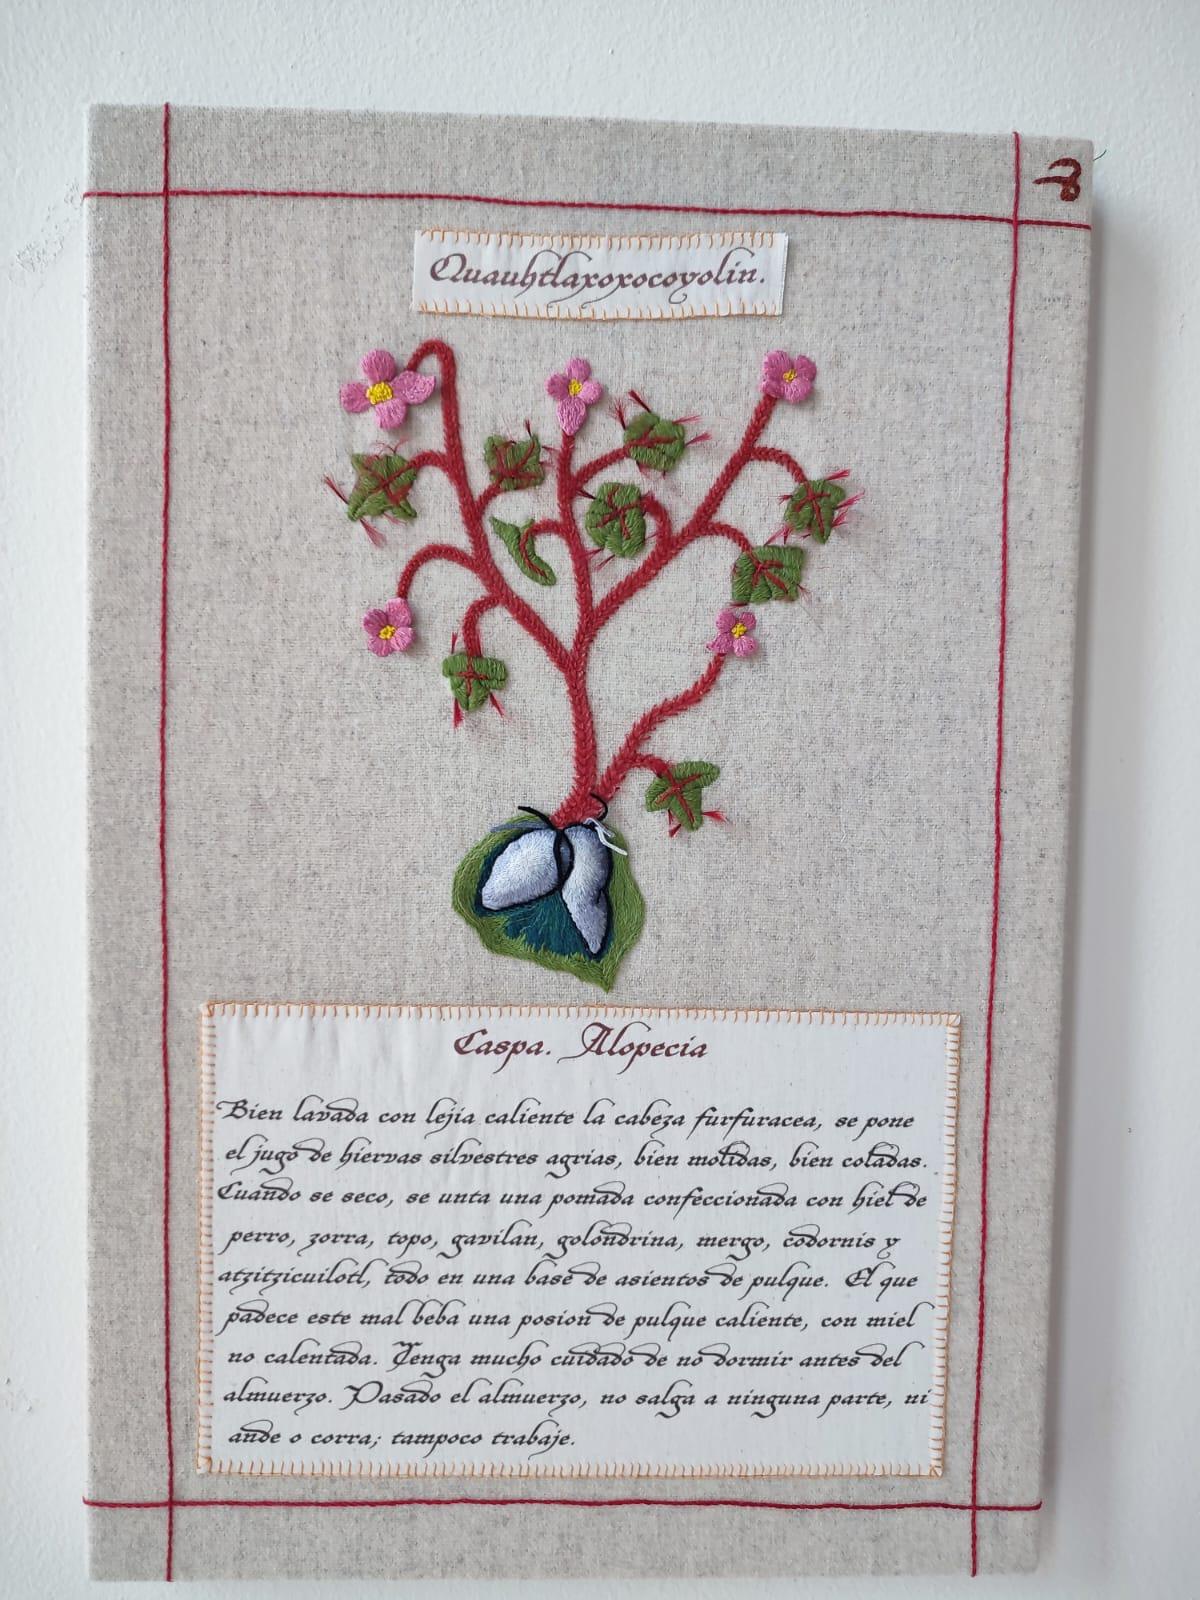 Quauhtlaxoxocoyolin.
Caspa. Alopecia
Bien lavada con lejia caliente la cabeza furfuracea, se pone
el jugo de hiervas silvestres agrias, bien molidas, bien coladas.
Cuando se seco, se unta una pomada confeccionada con hiel de
perro, zorra, topo, gavilan, golondrina, mergo, codornis y
atzitzicuilotl, todo en una base de asientos de pulque. El que
padece este mal beba una posion de pulque caliente, con miel
no calentada. Tenga mucho cuidado de no dormir antes del
almuerzo. Pasado el almuerzo, no salga a ninguna parte, ni
ande o corra; tampoco trabaje.